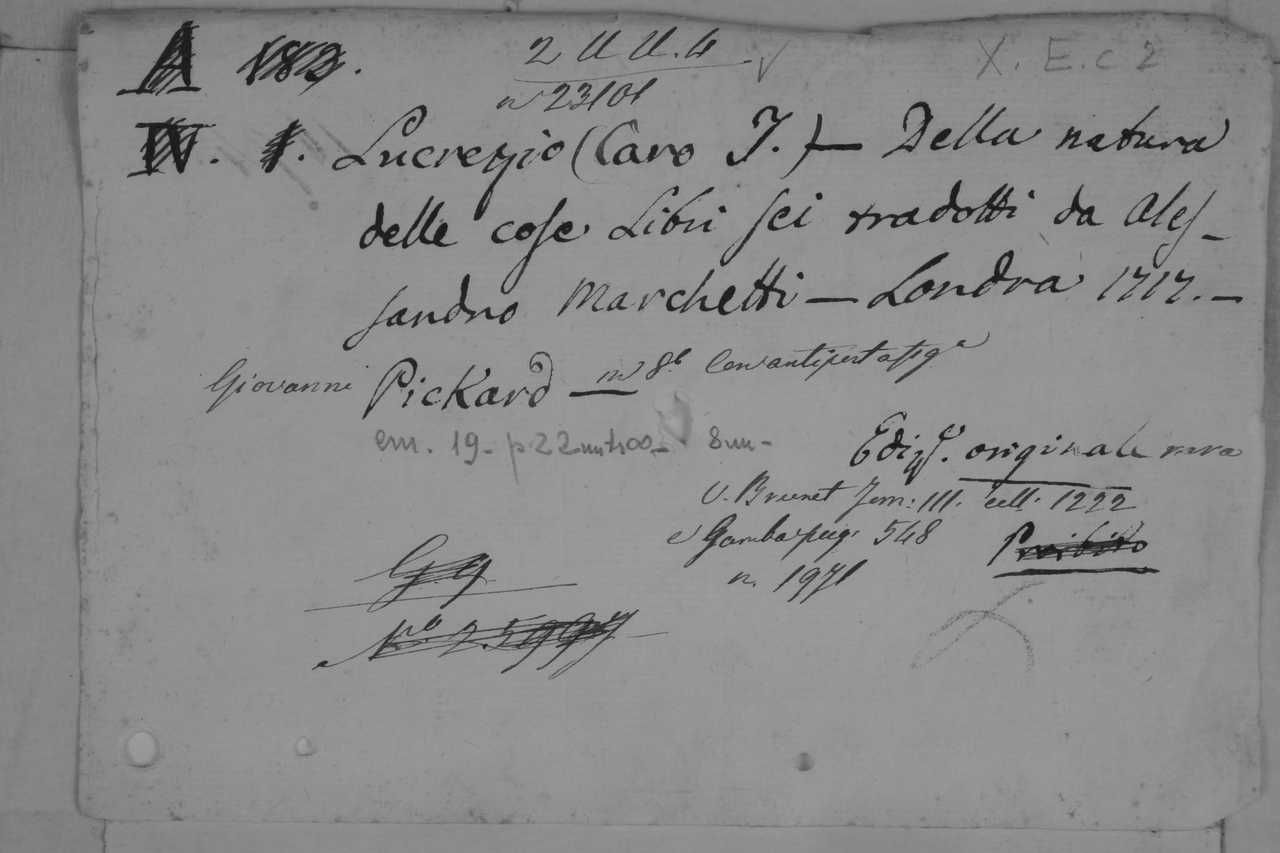 A 183. 2 U U. 4 X. E. c 2
n° 23101
IV. 1. Lucrezio (Caro T.) — Della natura
delle cose Libri sei tradotti da Ales-
sandro Marchetti — Londra 1717. —
Giovanni Pickard — in 8° Con antiporta
em. 19 - p 22 8
Ediz.e originale rara
V. Brunet Tom: III. coll. 1222
e Gamba pag. 548 Proibito
n. 1971
Gg
N.o